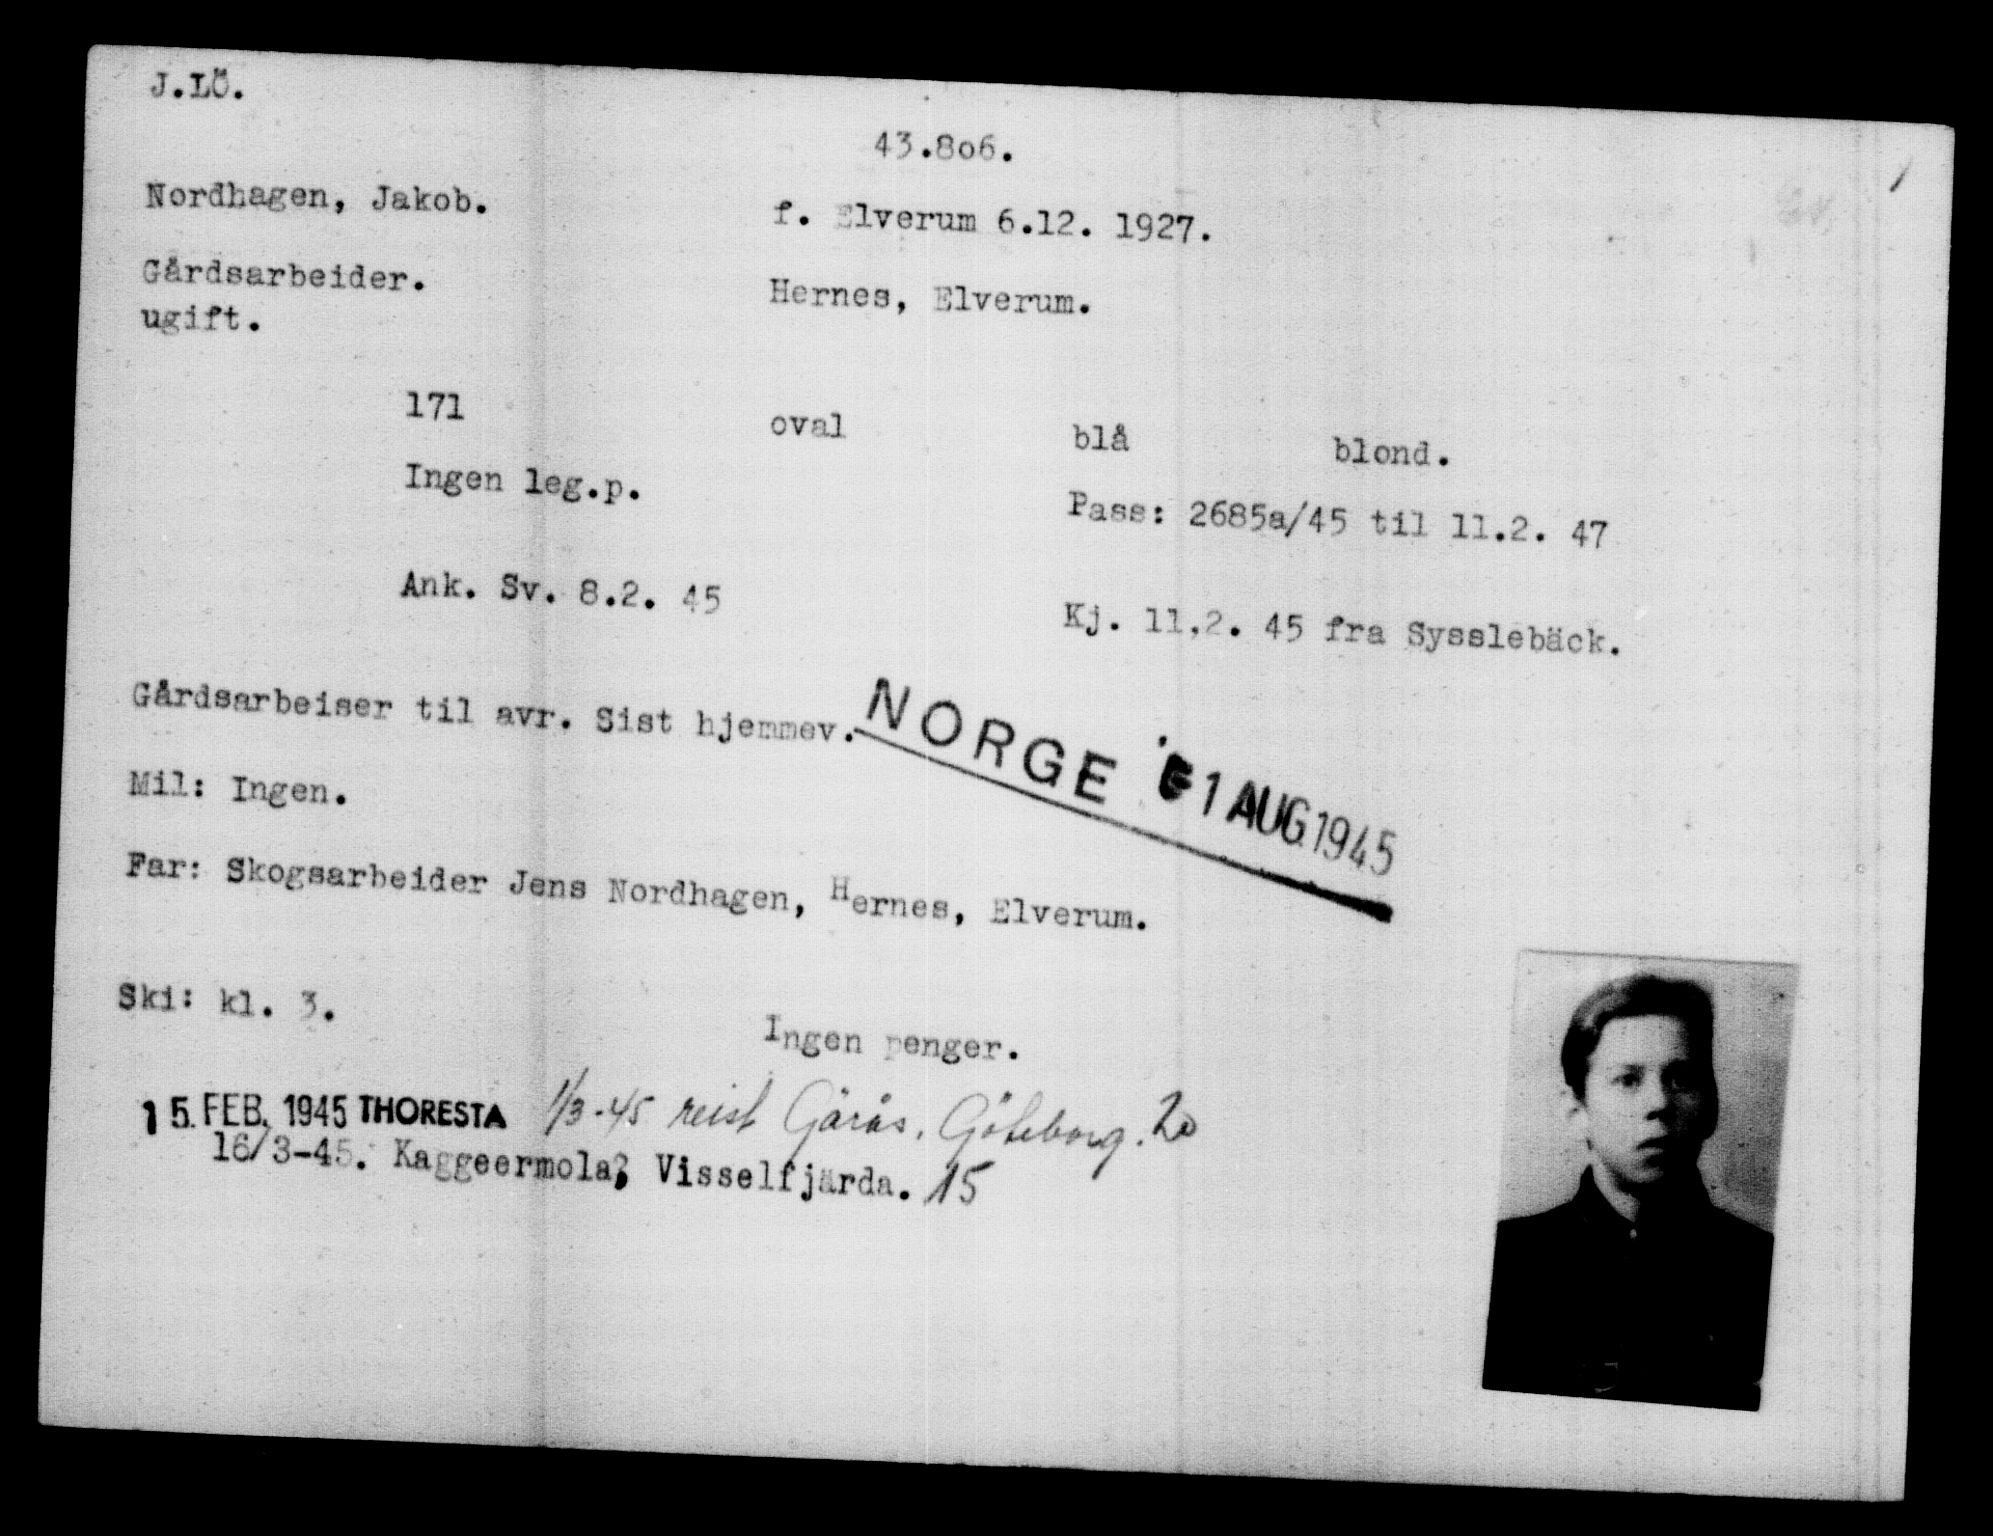 J.LÖ.
43.8o6.
Nordhagen, Jakob.
f. Elverum 6.12. 1927.
Gårdsarbeider.
Hernes, Elverum.
ugift.
171 oval blå blond.
Ingen leg.p.
Pass: 2685a/45 til 11.2. 47
Ank. Sv. 8.2. 45
Kj. 11.2. 45 fra Sysslebäck.
Gårdsarbeiser til avr. Sist hjemmev.
NORGE 1 AUG 1945
Mil: Ingen.
Far: Skogsarbeider Jens Nordhagen, Hernes, Elverum.
Ski: kl. 3.
Ingen penger.
15. FEB. 1945 THORESTA 1/3-45 reist Gårås, Göteborg. 20
16/3-45. Kaggeermola, Visselfjärda. 15